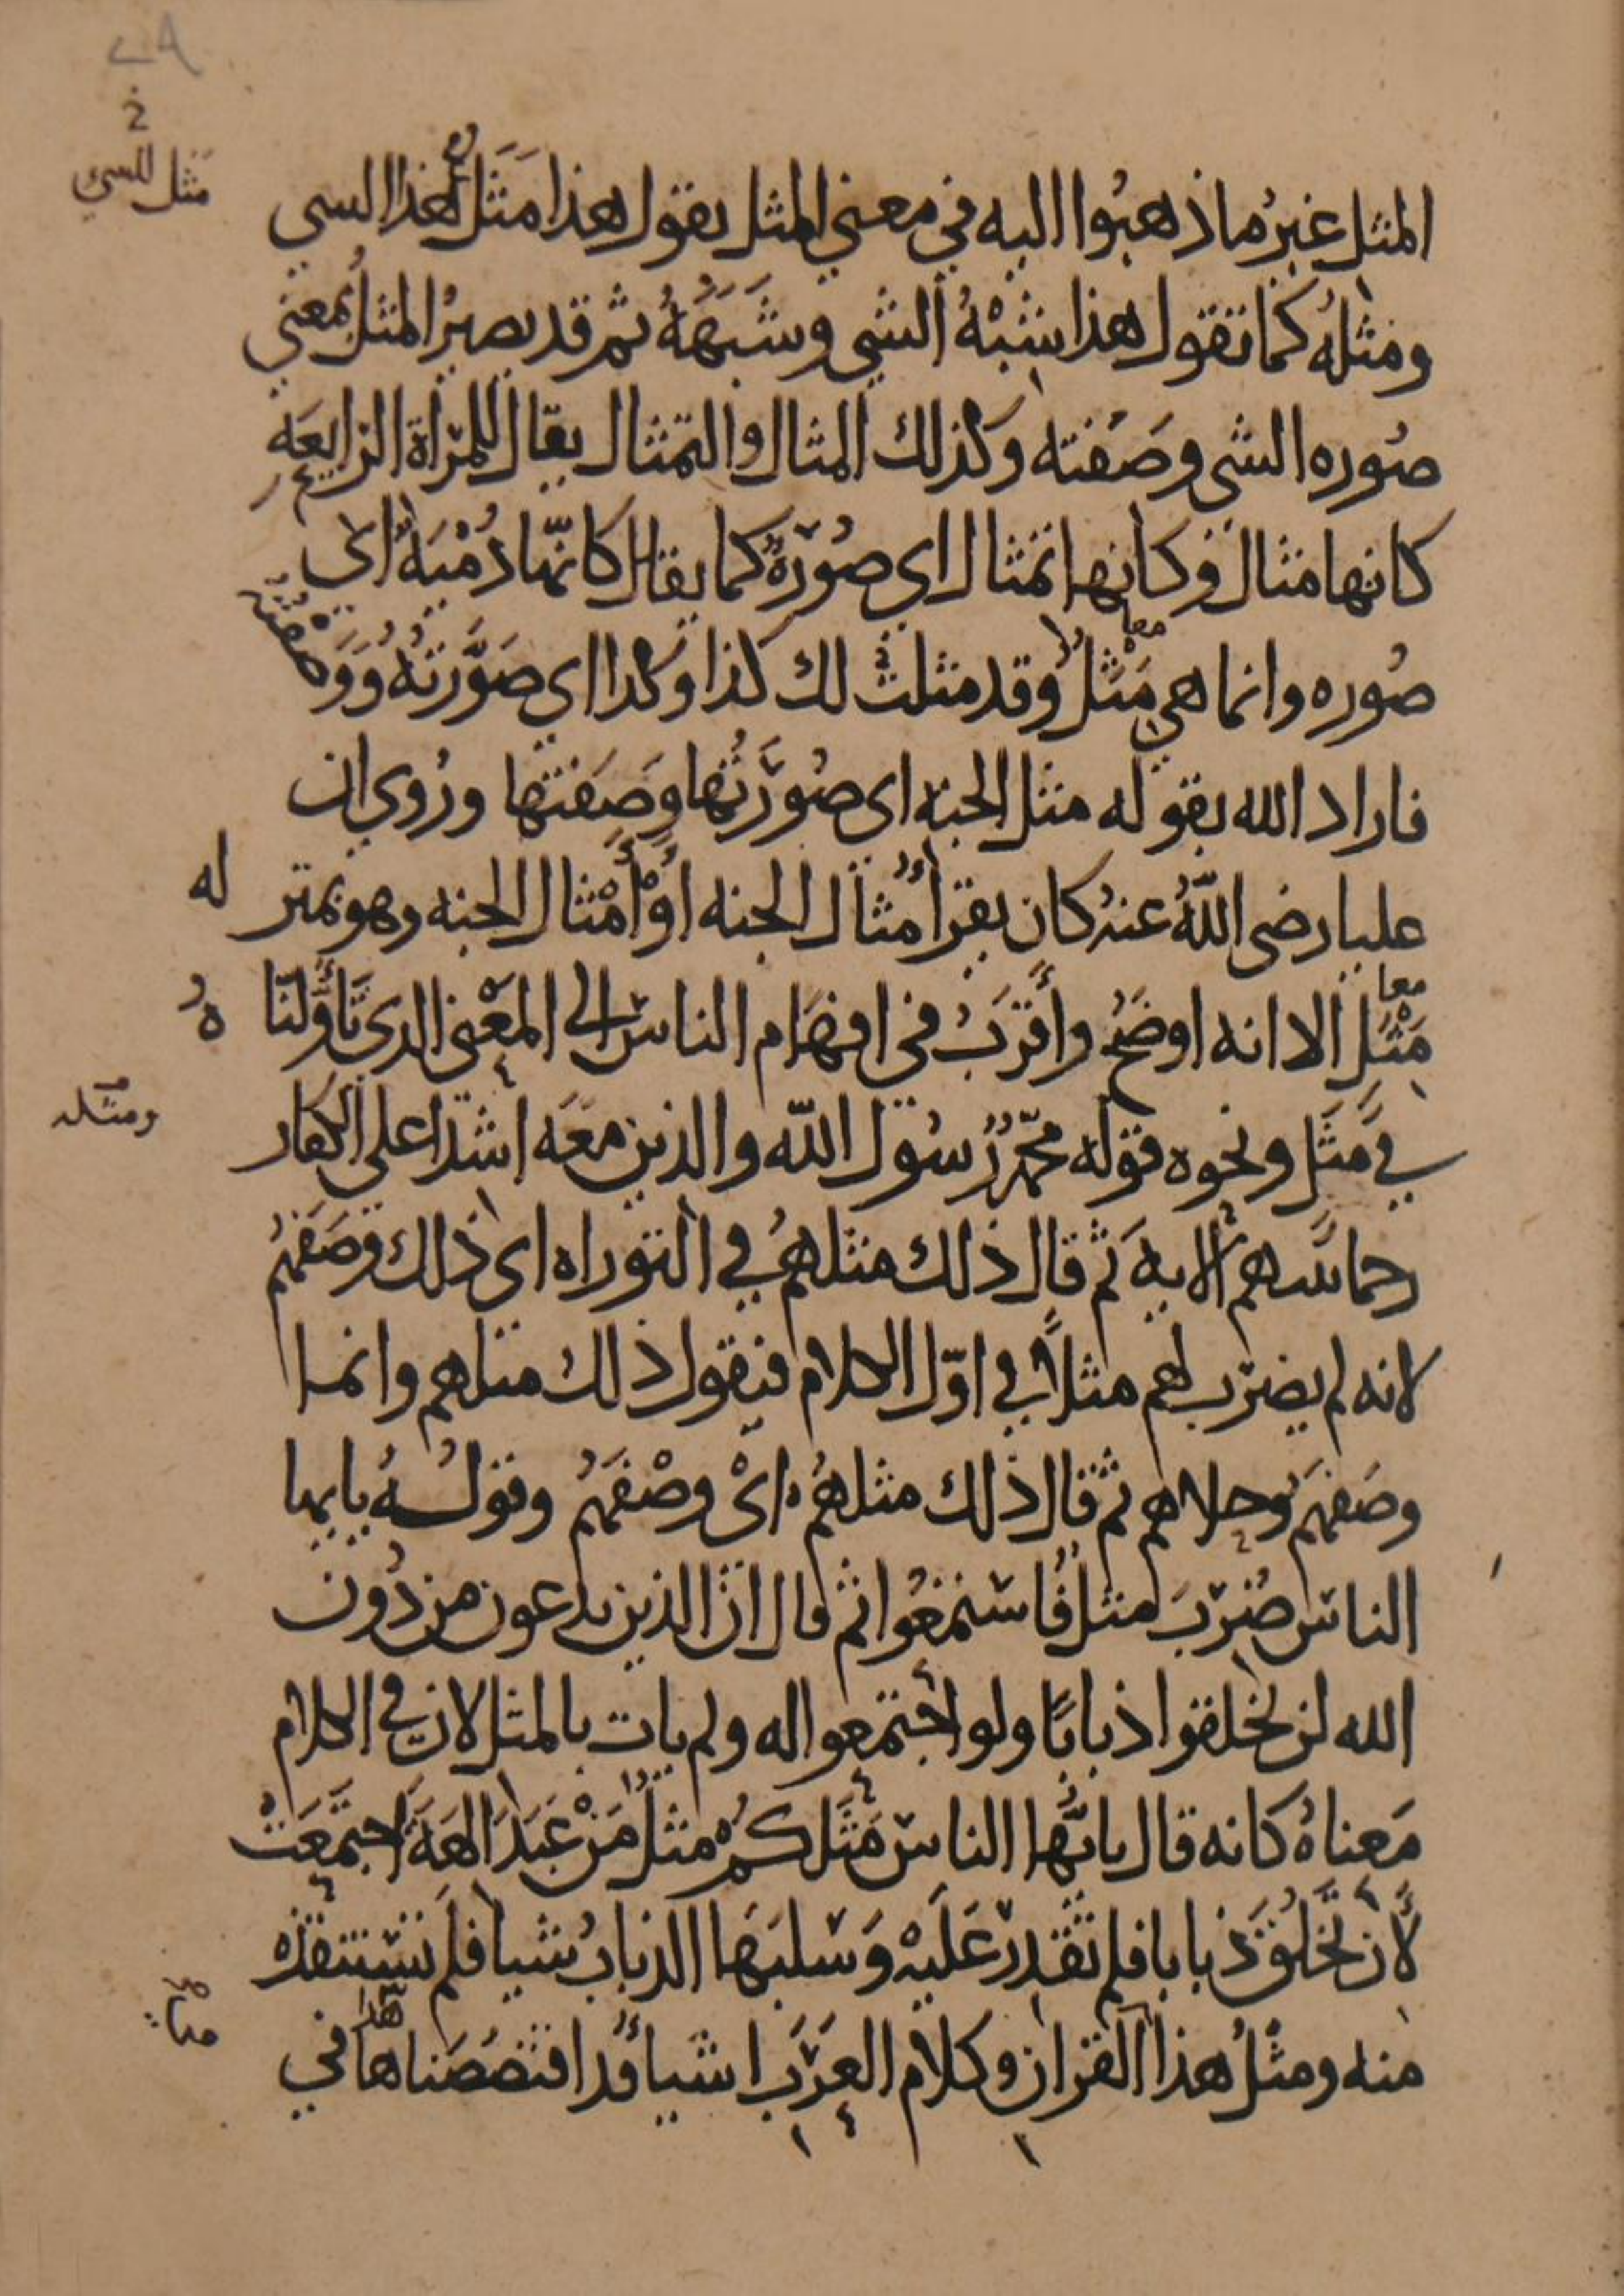 ٢٩
خ
مثل الشي
المثل غيرُ ما ذهبُوا اليه في معنى المثل يقول هذا مَثَل هذا الشي
ومثلُه كما تقول هذا شبْهُ الشي وشَبَهُهُ ثم قد يصيرُ المثل بمعنى
صُوره الشي وصَفته وكذلك المثال والتمثال يقال للمرْاة الرايعَه
كانها مثال وكانها تمثال اي صُوْرَةٌ كما يقال كانّها دُمْيَةٌ اي
صُوره وانما هي مَثْلٌ وقد مثلت لك كذا وكذا اي صَوَّرتهُ وَوَصَفْتُه
معا
فاراد الله بقوله مثل الجنه اى صُوْرَتُها وَصِفتها ورُوي ان
عليا رضى اللهُ عنهُ كان يقرأ مْثال الجنه اوْ أَمْثال الجنه وهو بمنزله
مَثَل الا انه اوضَحُ وأَقرَبُ في افهَام الناس الى المعْنى الدى تَأوَّلنَاهُ
معا
في مَثَل ونحوه قوله محمّدٌ رسُول الله والذين معَه اشدا على الكفار
ومثله
رحما بينهم الايةَ ثم قال ذلك مثلهمُ في التوراه اى ذلك وَصَفهمُ
لانه لم يضرب لهم مثلاً في اوّل الكلام فيقول ذلك مثلهم وانما
وصَفهَمُ وحلاهم ثم قال ذلك مثلهمُ اىْ وصْفهَمُ وقولُهُ يايها
الناس ضُرِبَ مثل فاستمعُوا ثم قال ان الذين يدعون من دُون
الله لن يخلقوا ذبابًا ولو اجتمعوا له ولم يات بالمثل لان في الكلام
مَعناهُ كانه قال يايّها الناس مَثَلكمُ مثلُ مَنْ عَبَدَ الهَةً اجتمَعَتْ
لأن تَخْلُقَ ذبابا فلم تقدرْ عَلَيْه وَسَلبَهَا الذبابُ شيا فلم تستنقذه
منه ومثْلُ هذا القران وكلام العرَب اشيا قد اقتصَصَناها في